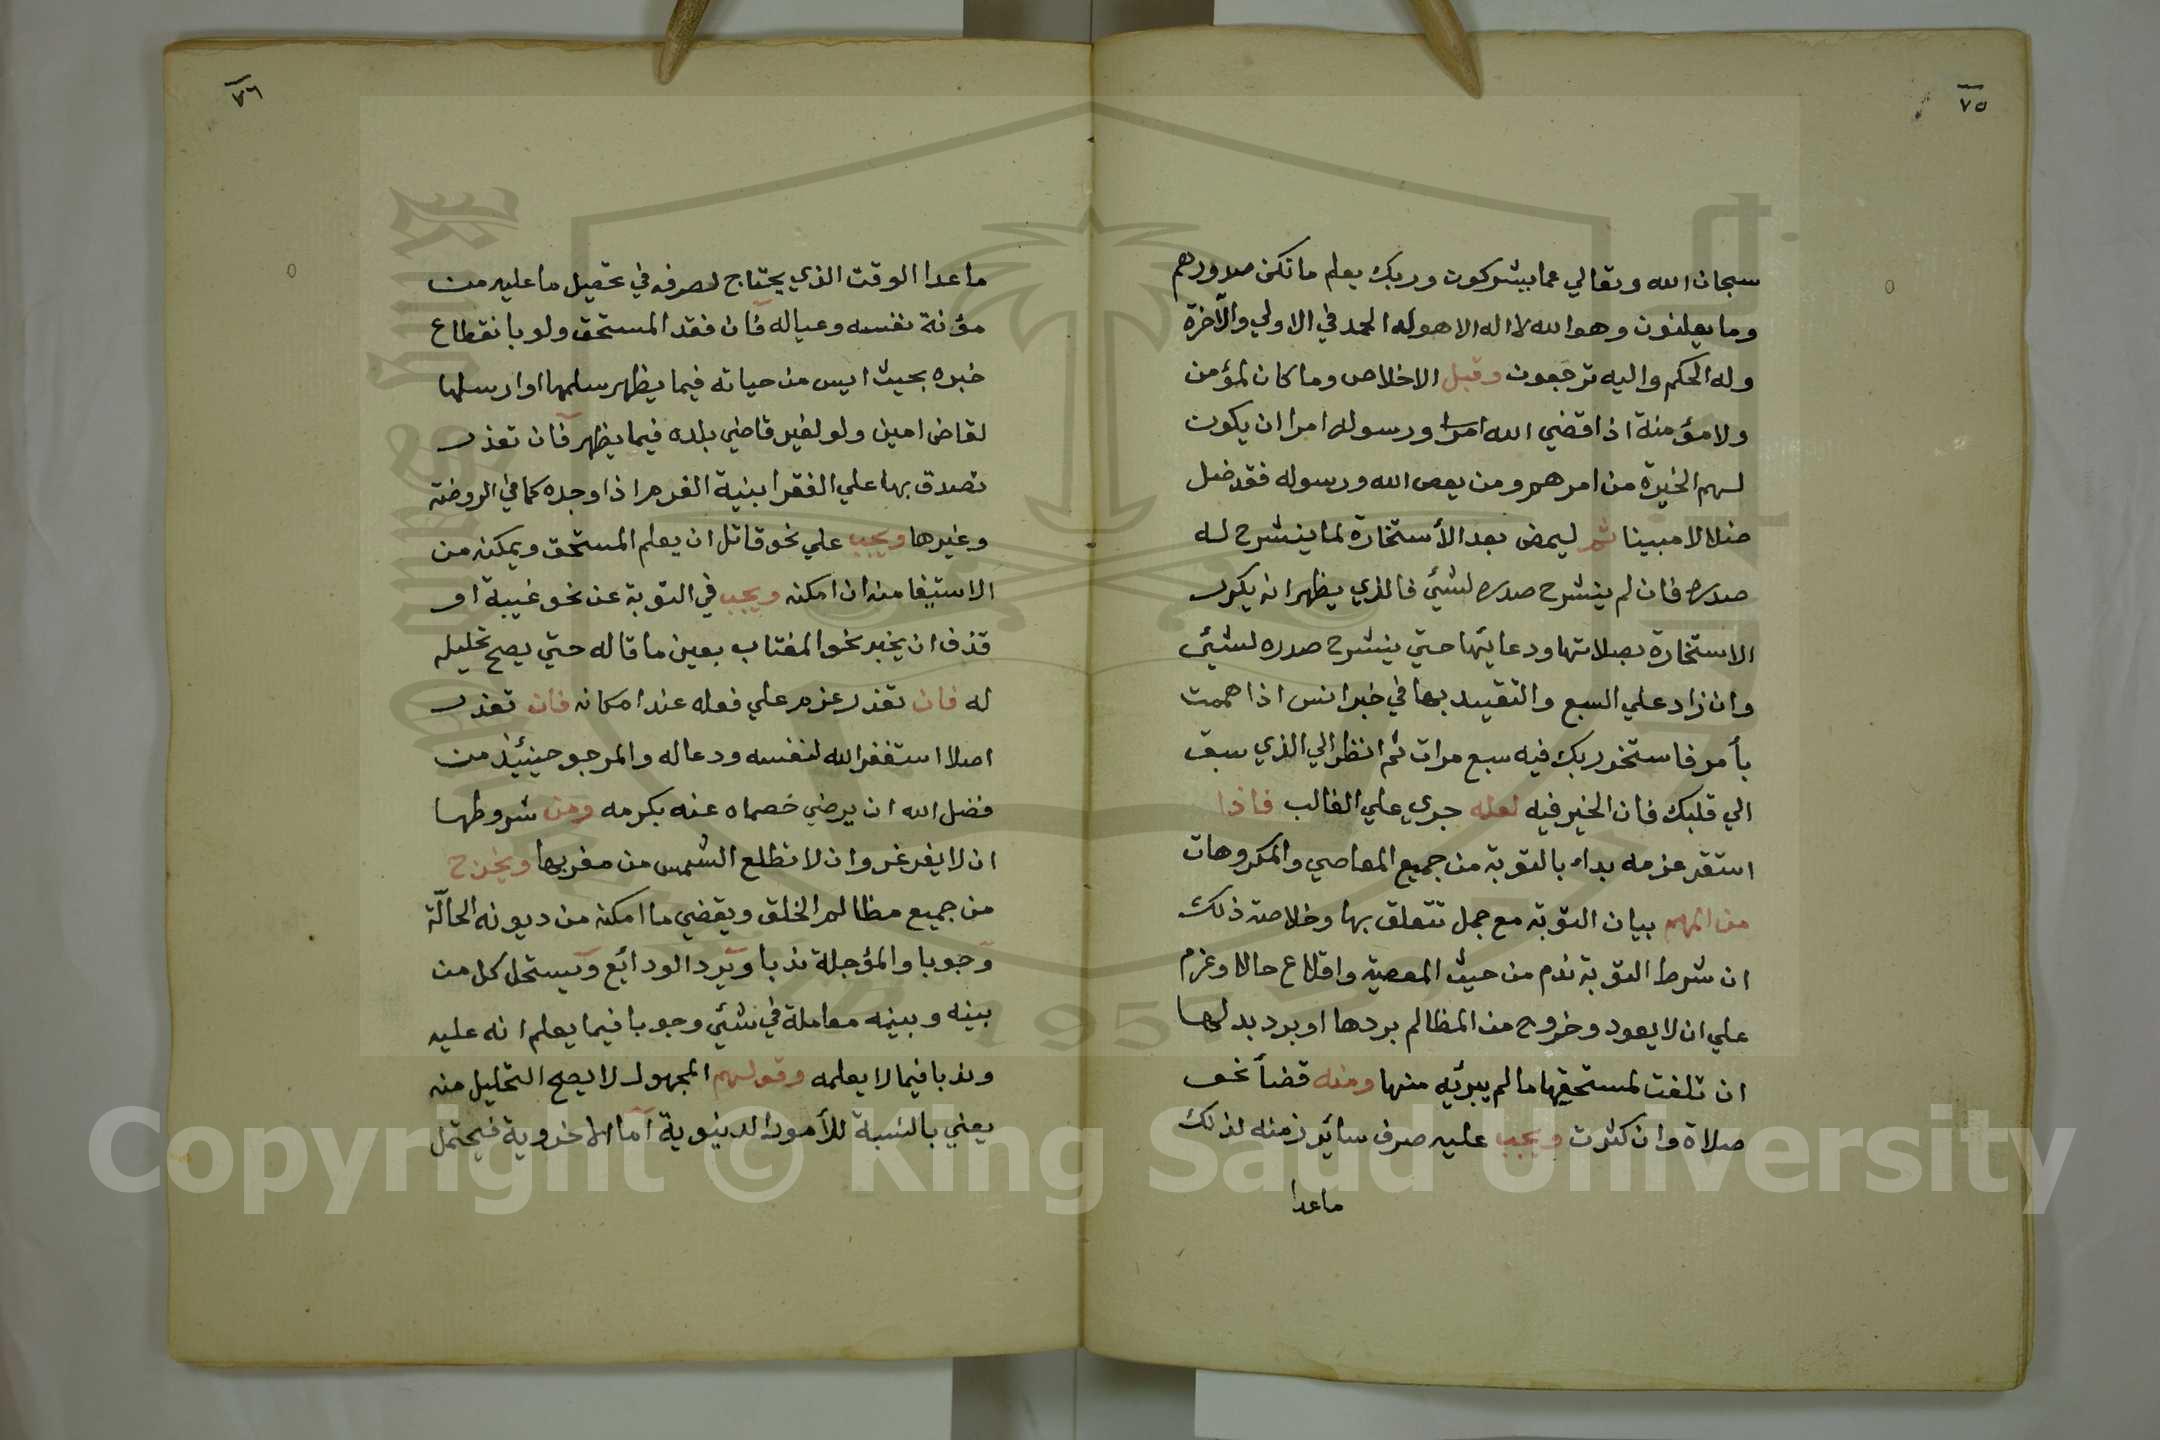 ٧٥
سبحان الله وتعالي عما يشركون وربك يعلم ما تكن صدورهم
وما يعلنون وهو الله لا اله الا هو له الحمد في الاولي والآخرة
وله الحكم واليه ترجعون وقبل الاخلاص وما كان لمؤمن
ولا مؤمنة اذا قضي الله ورسوله امرا ان يكون
لهم الخيرة من امرهم ومن يعص الله ورسوله فقد ضل
ضلالا مبينا ثم ليمض بعد الأستخارة لما ينشرح له
صدره فان لم ينشرح صدره لشئي فالذي يظهر انه يكرر
الاستخارة بصلاتها ودعائها حتي ينشرح صدره لشئي
وان زاد علي السبع والتقييد بها في خبر انس اذا هممت
بأمر فاستخر ربك فيه سبع مرات ثم انظر الي الذي سبق
الي قلبك فان الخير فيه لعله جري علي الغالب فاذا
استقر عزمه بداء بالتوبة من جميع المعاصي والمكروهات
من المهم بيان التوبة مع جمل تتعلق بها وخلاصة ذلك
ان شرط التوبة ندم من حيث المعصية واقلاع حالا وعزم
علي ان لا يعود وخروج من المظالم بردها او برد بدلها
ان تلفت لمستحقيها ما لم يبرئيه منها ومنه قضأ نحو
صلاة وان كثرت ويجب عليه صرف سائر زمنه لذلك
ماعدا
٧٦
ماعدا الوقت الذي يحتاج لصرفه في تحصيل ما عليه من
مؤنة نفسه وعياله فان فقد المستحق ولو بانقطاع
خبره بحيث ايس من حياته فيما يظهر سلمها او ارسلها
لقاض امين ولو لغير قاضي بلده فيما يظهر فان تعذر
تصدق بها علي الفقرا بنية الغرم اذا وجده كما في الروضة
وغيرها ويجب علي نحو قاتل ان يعلم المستحق ويمكنه من
الاستيفا منه ان امكنه ويجب في التوبة عن نحو غيبة او
قذف ان يخبر نحو المغتاب بعين ما قاله حتي يصح تحليله
له فان تعذر عزم علي فعله عند امكانه فان تعذر
اصلا استغفر الله لنفسه ودعا له والمرجو حينئيذ من
فضل الله ان يرضي خصماه عنه بكرمه ومن شروطها
ان لا يغرغر وان لا تطلع الشمس من مغربها ويخرج
من جميع مظالم الخلق ويقضي ما امكنه من ديونه الحآلة
وجوبا والمؤجلة ندبا ويرد الودائع ويستحل كل من
بينه وبينه معاملة في شئي وجوبا فيما يعلم انه عليه
وندبا فيما لا يعلمه وقولهم المجهول لا يصح التحليل منه
يعني بالنسبة للأمور الدنيوية اما الاخروية فيحتمل
Copyright © King Saud University
1957